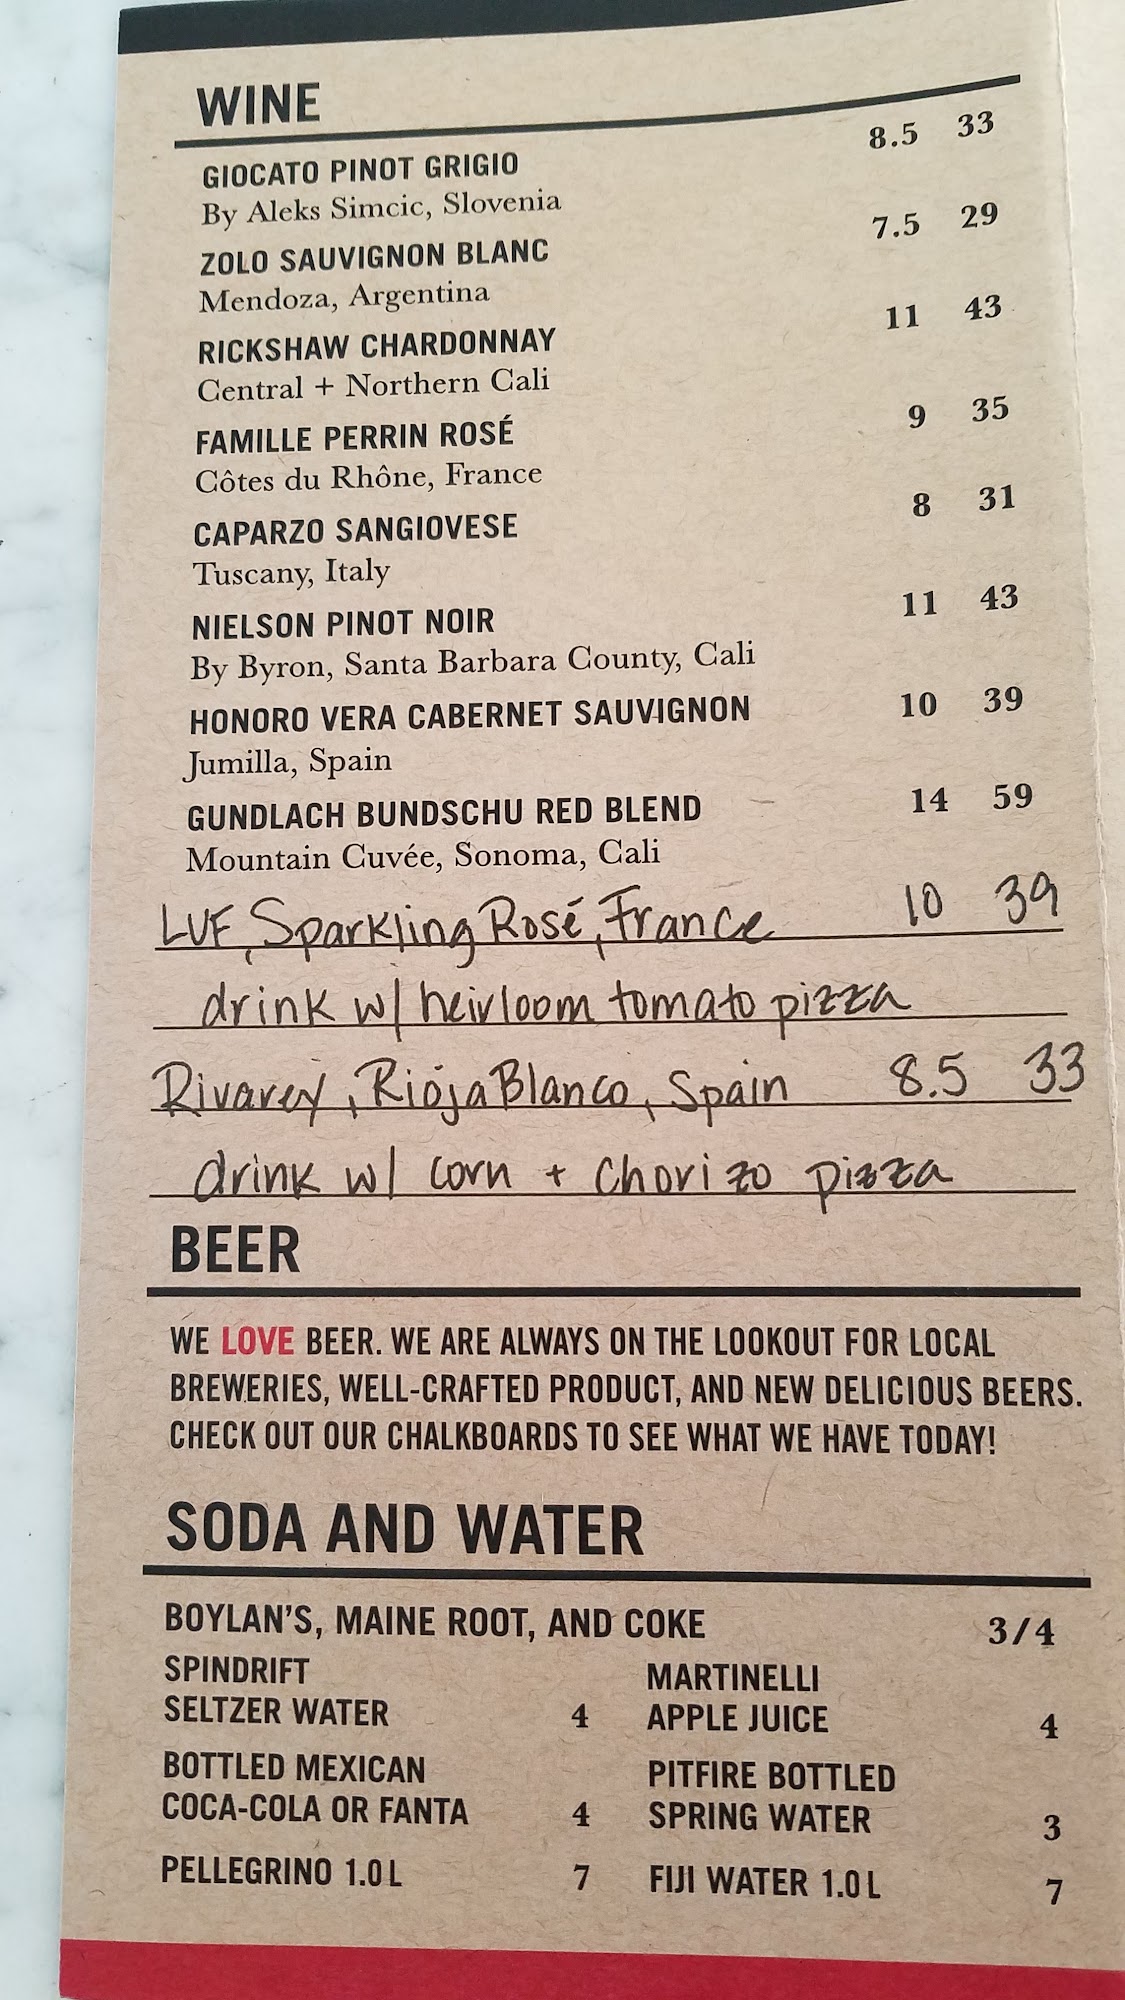 WINE
GIOCATO PINOT GRIGIO 8.5 33
By Aleks Simcic, Slovenia
ZOLO SAUVIGNON BLANC 7.5 29
Mendoza, Argentina
RICKSHAW CHARDONNAY 11 43
Central + Northern Cali
FAMILLE PERRIN ROSÉ 9 35
Côtes du Rhône, France
CAPARZO SANGIOVESE 8 31
Tuscany, Italy
NIELSON PINOT NOIR 11 43
By Byron, Santa Barbara County, Cali
HONORO VERA CABERNET SAUVIGNON 10 39
Jumilla, Spain
GUNDLACH BUNDSCHU RED BLEND 14 59
Mountain Cuvée, Sonoma, Cali
LVF, Sparkling Rosé, France 10 39
drink w/ heirloom tomato pizza
Rivarey, Rioja Blanco, Spain 8.5 33
drink w/ corn + chorizo pizza
BEER
WE LOVE BEER. WE ARE ALWAYS ON THE LOOKOUT FOR LOCAL
BREWERIES, WELL-CRAFTED PRODUCT, AND NEW DELICIOUS BEERS.
CHECK OUT OUR CHALKBOARDS TO SEE WHAT WE HAVE TODAY!
SODA AND WATER
BOYLAN'S, MAINE ROOT, AND COKE 3/4
SPINDRIFT
SELTZER WATER 4
MARTINELLI
APPLE JUICE 4
BOTTLED MEXICAN
COCA-COLA OR FANTA 4
PITFIRE BOTTLED
SPRING WATER 3
PELLEGRINO 1.0 L 7
FIJI WATER 1.0 L 7